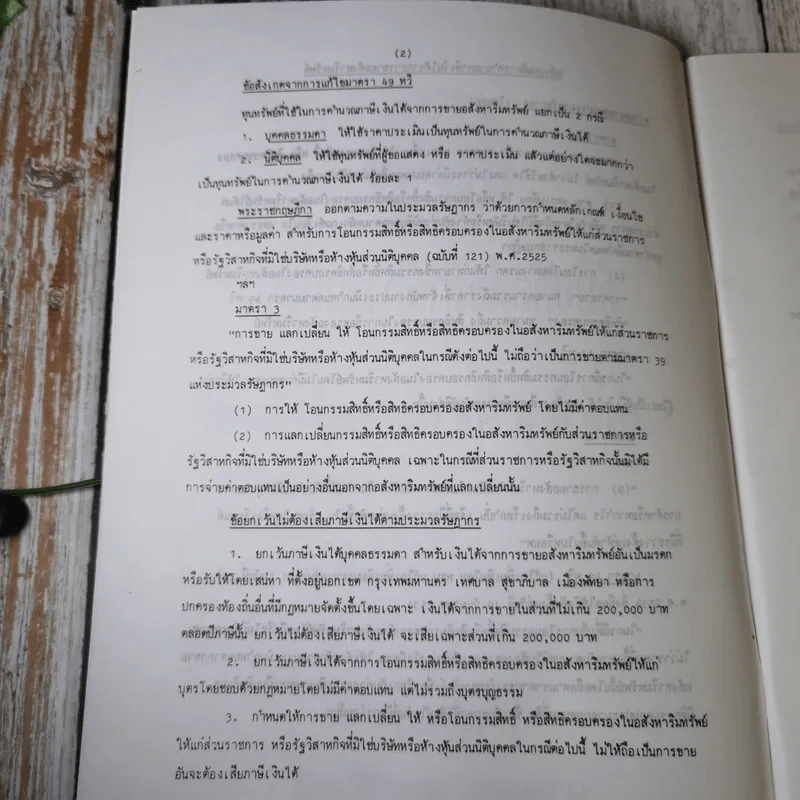 (2)
ข้อสังเกตจากการแก้ไขมาตรา 49 ทวิ
ทุนทรัพย์ที่ใช้ในการคำนวณภาษีเงินได้จากการขายอสังหาริมทรัพย์ แยกเป็น 2 กรณี
1. บุคคลธรรมดา ให้ใช้ราคาประเมินเป็นทุนทรัพย์ในการคำนวณภาษีเงินได้
2. นิติบุคคล ให้ใช้ทุนทรัพย์ที่ผู้ขอแสดง หรือ ราคาประเมิน แล้วแต่อย่างใดจะมากกว่า
เป็นทุนทรัพย์ในการคำนวณภาษีเงินได้ ร้อยละ 1
พระราชกฤษฎีกา ออกตามความในประมวลรัษฎากร ว่าด้วยการกำหนดหลักเกณฑ์ เงื่อนไข
และราคาหรือมูลค่า สำหรับการโอนกรรมสิทธิ์หรือสิทธิครอบครองในอสังหาริมทรัพย์ให้แก่ส่วนราชการ
หรือรัฐวิสาหกิจที่มิใช่บริษัทหรือห้างหุ้นส่วนนิติบุคคล (ฉบับที่ 121) พ.ศ.2525
ฯลฯ
มาตรา 3
"การขาย แลกเปลี่ยน ให้ โอนกรรมสิทธิ์หรือสิทธิครอบครองในอสังหาริมทรัพย์ให้แก่ส่วนราชการ
หรือรัฐวิสาหกิจที่มิใช่บริษัทหรือห้างหุ้นส่วนนิติบุคคลในกรณีดังต่อไปนี้ ไม่ถือว่าเป็นการขายตามมาตรา 39
แห่งประมวลรัษฎากร"
(1) การให้ โอนกรรมสิทธิ์หรือสิทธิครอบครองอสังหาริมทรัพย์ โดยไม่มีค่าตอบแทน
(2) การแลกเปลี่ยนกรรมสิทธิ์หรือสิทธิครอบครองในอสังหาริมทรัพย์กับส่วนราชการหรือ
รัฐวิสาหกิจที่มิใช่บริษัทหรือห้างหุ้นส่วนนิติบุคคล เฉพาะในกรณีที่ส่วนราชการหรือรัฐวิสาหกิจนั้นมิได้มี
การจ่ายค่าตอบแทนเป็นอย่างอื่นนอกจากอสังหาริมทรัพย์ที่แลกเปลี่ยนนั้น
ข้อยกเว้นไม่ต้องเสียภาษีเงินได้ตามประมวลรัษฎากร
1. ยกเว้นภาษีเงินได้บุคคลธรรมดา สำหรับเงินได้จากการขายอสังหาริมทรัพย์อันเป็นมรดก
หรือรับให้โดยเสน่หา ที่ตั้งอยู่นอกเขต กรุงเทพมหานคร เทศบาล สุขาภิบาล เมืองพัทยา หรือการ
ปกครองท้องถิ่นอื่นที่มีกฎหมายจัดตั้งขึ้นโดยเฉพาะ เงินได้จากการขายในส่วนที่ไม่เกิน 200,000 บาท
ตลอดปีภาษีนั้น ยกเว้นไม่ต้องเสียภาษีเงินได้ จะเสียเฉพาะส่วนที่เกิน 200,000 บาท
2. ยกเว้นภาษีเงินได้จากการโอนกรรมสิทธิ์หรือสิทธิครอบครองในอสังหาริมทรัพย์ให้แก่
บุตรโดยชอบด้วยกฎหมายโดยไม่มีค่าตอบแทน แต่ไม่รวมถึงบุตรบุญธรรม
3. กำหนดให้การขาย แลกเปลี่ยน ให้ หรือโอนกรรมสิทธิ์ หรือสิทธิครอบครองในอสังหาริมทรัพย์
ให้แก่ส่วนราชการ หรือรัฐวิสาหกิจที่มิใช่บริษัทหรือห้างหุ้นส่วนนิติบุคคลในกรณีต่อไปนี้ ไม่ให้ถือเป็นการขาย
อันจะต้องเสียภาษีเงินได้